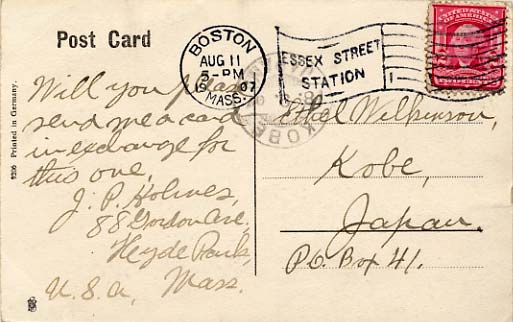 Post Card
BOSTON
AUG 11
5-PM
07
MASS.
ESSEX STREET
STATION
1
UNITED STATES
OF AMERICA
KOBE
Will you please
send me a card
in exchange for
this one,
J. P. Holmes,
88 Gordon Ave.
Hyde Park,
Mass.
U.S.A.
Ethel Wilkinson,
Kobe,
Japan.
P.O. Box 41.
9206 Printed in Germany.